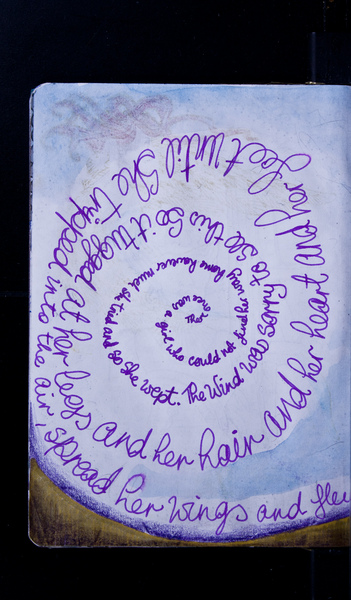 once was a girl who could not find her way home however much she tried and so she wept. The Wind was sorry to see this So it tugged at her legs and her hair and her heart and her feet Until She Tripped into the air, spread her wings and